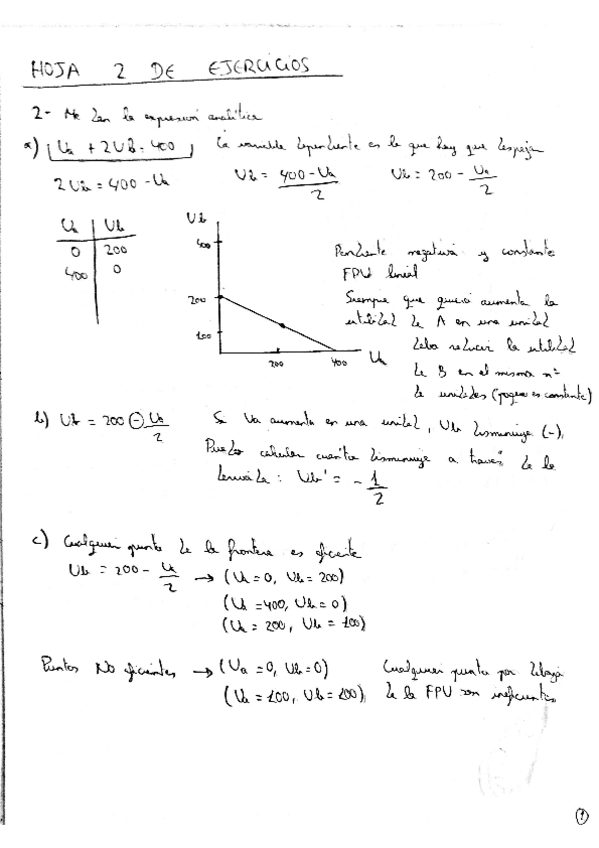 HOJA 2 DE EJERCICIOS
2- Me dan la expresión analítica
a) Ua + 2UB = 400 La variable dependiente es la que hay que despejar
2Ub = 400 - Ua Ub = 400 - Ua / 2 Ub = 200 - Ua / 2
Ua | Ub
0 | 200
400 | 0
Ub
400
200
100
200 400 Ua
Pendiente negativa y constante
FPU lineal
Siempre que quiera aumentar la
utilidad de A en una unidad
debo reducir la utilidad
de B en el mismo nº
de unidades (porque es constante)
b) Ub = 200 - Ua / 2 Si Ua aumenta en una unidad, Ub disminuye (-),
Puedo calcular cuánto disminuye a través de la
derivada: Ub' = - 1 / 2
c) Cualquier punto de la frontera es eficiente
Ub = 200 - Ua / 2 → (Ua = 0, Ub = 200)
(Ua = 400, Ub = 0)
(Ua = 200, Ub = 100)
Puntos No eficientes → (Ua = 0, Ub = 0) Cualquier punto por debajo
(Ua = 100, Ub = 100) de la FPU son ineficientes
1